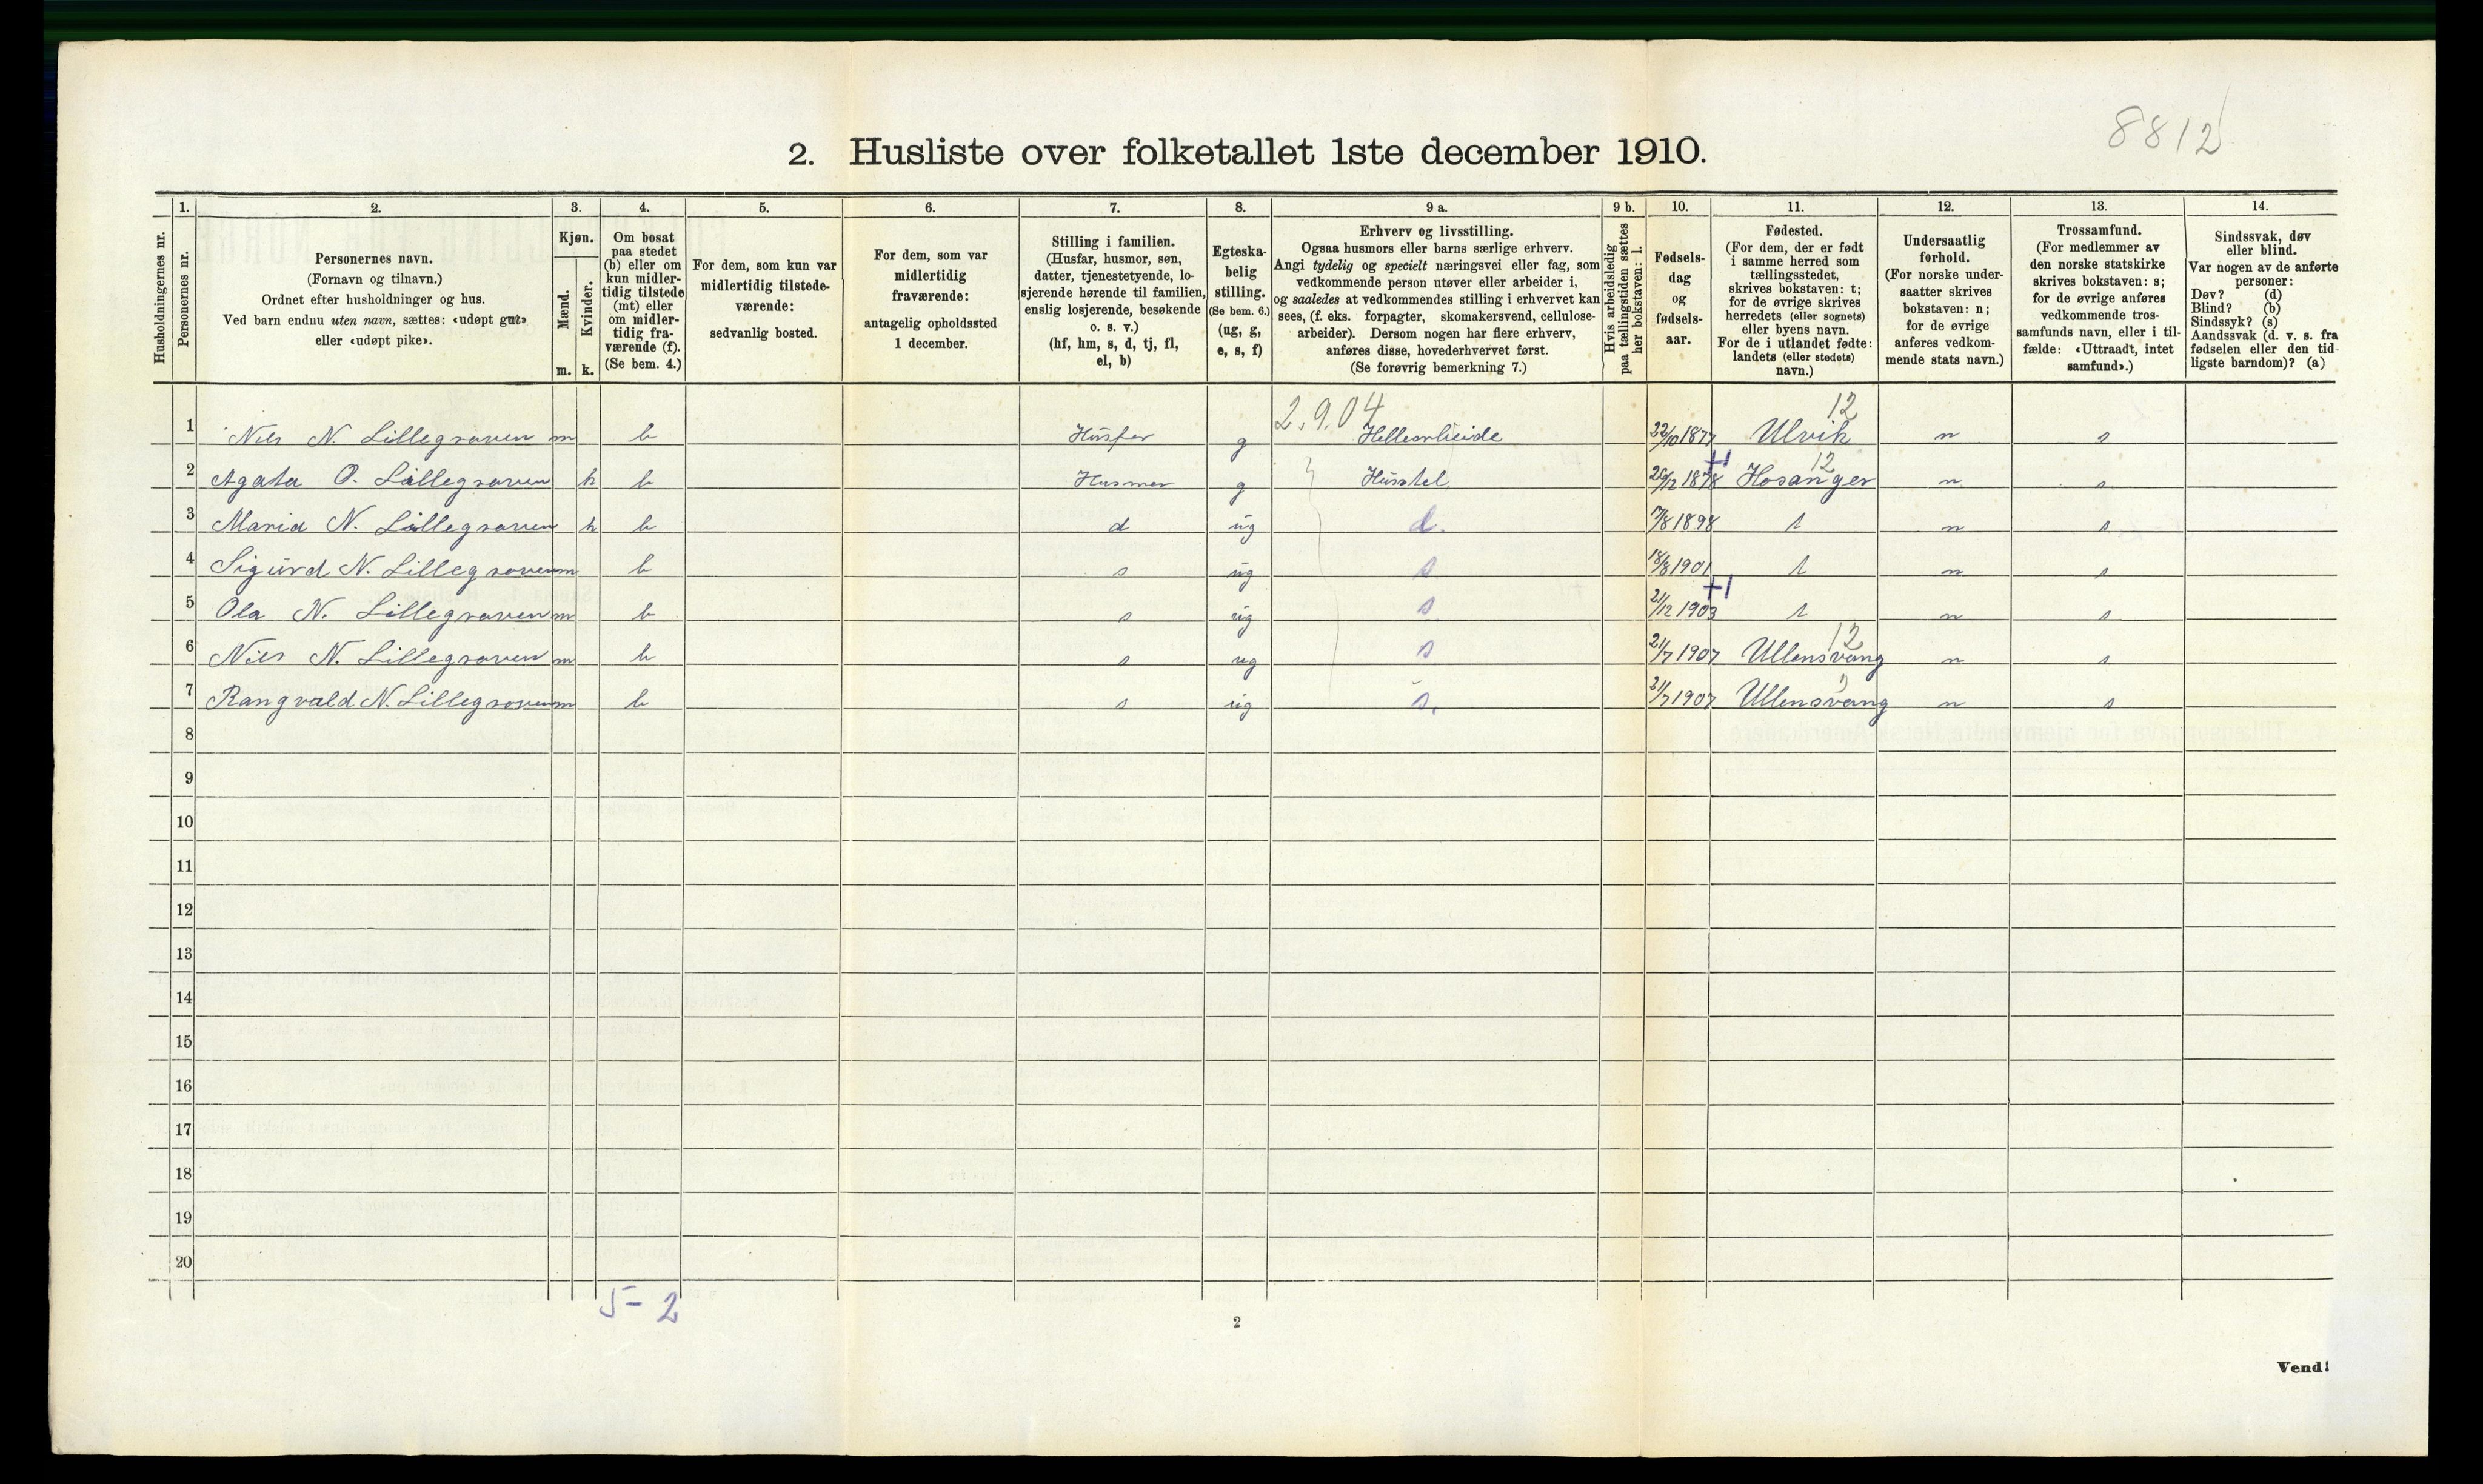 8812
2. Husliste over folketallet 1ste december 1910.
Husholdningernes nr.
1.
Personernes nr.
2.
Personernes navn.
(Fornavn og tilnavn.)
Ordnet efter husholdninger og hus.
Ved barn endnu uten navn, sættes: «udøpt gut»
eller «udøpt pike».
3.
Kjøn.
Mænd.
Kvinder.
m. k.
4.
Om bosat
paa stedet
(b) eller om
kun midler-
tidig tilstede
(mt) eller
om midler-
tidig fra-
værende (f).
(Se bem. 4.)
5.
For dem, som kun var
midlertidig tilstede-
værende:
sedvanlig bosted.
6.
For dem, som var
midlertidig
fraværende:
antagelig opholdssted
1 december.
7.
Stilling i familien.
(Husfar, husmor, søn,
datter, tjenestetyende, lo-
sjerende hørende til familien,
enslig losjerende, besøkende
o. s. v.)
(hf, hm, s, d, tj, fl,
el, b)
8.
Egteska-
belig
stilling.
(Se bem. 6.)
(ug, g,
e, s, f)
9 a.
Erhverv og livsstilling.
Ogsaa husmors eller barns særlige erhverv.
Angi tydelig og specielt næringsvei eller fag, som
vedkommende person utøver eller arbeider i,
og saaledes at vedkommendes stilling i erhvervet kan
sees, (f. eks. forpagter, skomakersvend, cellulose-
arbeider). Dersom nogen har flere erhverv,
anføres disse, hovederhvervet først.
(Se forøvrig bemerkning 7.)
9 b.
Hvis arbeidsledig
paa tællingstiden sættes
her bokstaven: l.
10.
Fødsels-
dag
og
fødsels-
aar.
11.
Fødested.
(For dem, der er født
i samme herred som
tællingsstedet,
skrives bokstaven: t;
for de øvrige skrives
herredets (eller sognets)
eller byens navn.
For de i utlandet fødte:
landets (eller stedets)
navn.)
12.
Undersaatlig
forhold.
(For norske under-
saatter skrives
bokstaven: n;
for de øvrige
anføres vedkom-
mende stats navn.)
13.
Trossamfund.
(For medlemmer av
den norske statskirke
skrives bokstaven: s;
for de øvrige anføres
vedkommende tros-
samfunds navn, eller i til-
fælde: «Uttraadt, intet
samfund».)
14.
Sindssvak, døv
eller blind.
Var nogen av de anførte
personer:
Døv? (d)
Blind? (b)
Sindssyk? (s)
Aandssvak (d. v. s. fra
fødselen eller den tid-
ligste barndom)? (a)
2.9.04 12
1 Nils N. Lillegraven m b Husfar g Hellearbeide 22/10 1877 Ulvik n s
+1 12
2 Agata O. Lillegraven k b Husmor g Husstel 26/12 1878 Hosanger n s
3 Maria N. Lillegraven k b d ug d. 7/8 1898 t n s
4 Sigurd N. Lillegraven m b s ug s 18/8 1901 t n s
+1
5 Ola N. Lillegraven m b s ug s 21/12 1903 t n s
12
6 Nils N. Lillegraven m b s ug s 21/7 1907 Ullensvang n s
7 Rangvald N. Lillegraven m b s ug s. 21/7 1907 Ullensvang n s
8
9
10
11
12
13
14
15
16
17
18
19
20
5-2
2
Vend!